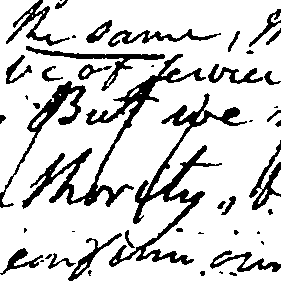 the same,
be of service
But we
thority,
conform our